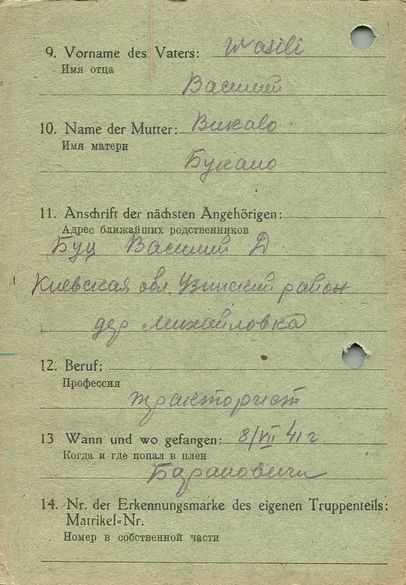 9. Vorname des Vaters: Wasili
Имя отца
Василий
10. Name der Mutter: Bukalo
Имя матери
Букало
11. Anschrift der nächsten Angehörigen:
Адрес ближайших родственников
Буц Василий Д
Киевская обл. Узинский район
дер Михайловка
12. Beruf:
Профессия
тракторист
13 Wann und wo gefangen: 8/VII 41 г.
Когда и где попал в плен
Барановичи
14. Nr. der Erkennungsmarke des eigenen Truppenteils:
Matrikel=Nr.
Номер в собственной части